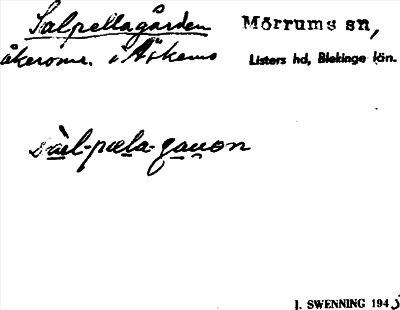 Salpellagården
Mörrums sn,
åkeromr. i Åskems
Listers hd, Blekinge län.
sàl-pæla-gauon
J. SWENNING 194